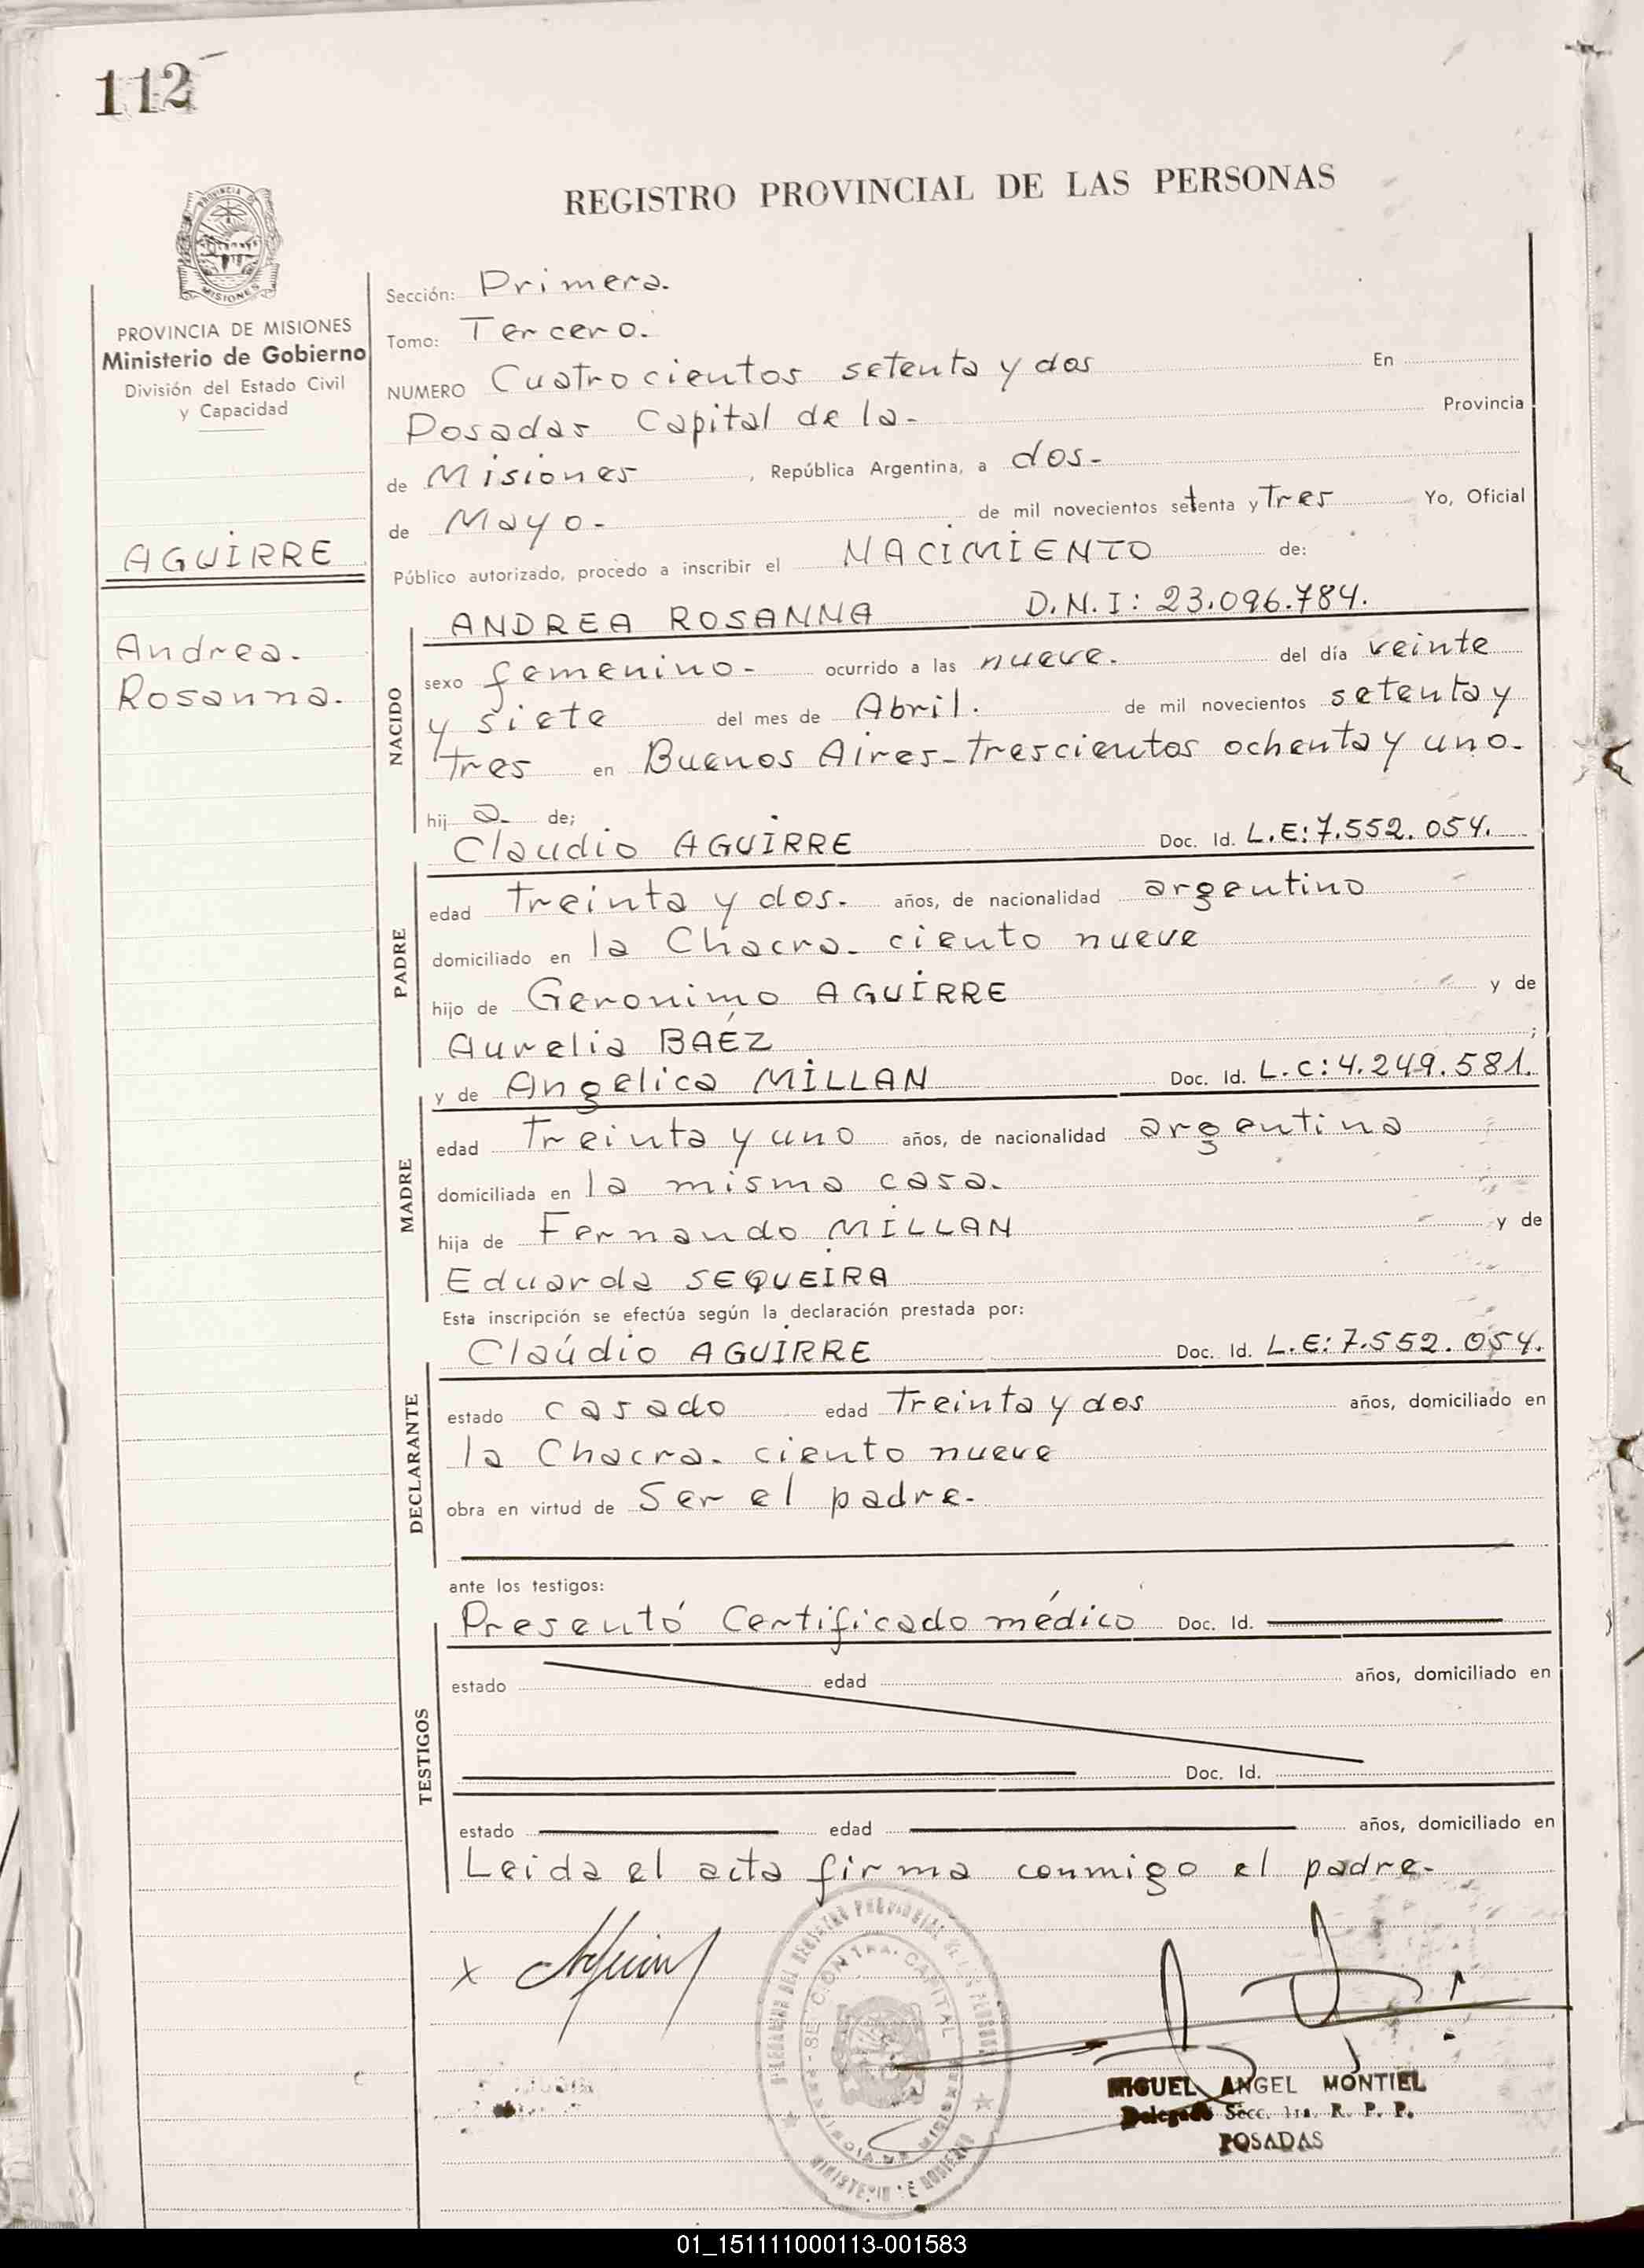 112
REGISTRO PROVINCIAL DE LAS PERSONAS
PROVINCIA
MISIONES
PROVINCIA DE MISIONES
Ministerio de Gobierno
División del Estado Civil
y Capacidad
AGUIRRE
Andrea.
Rosanna.
Sección: Primera.
Tomo: Tercero.
NUMERO Cuatrocientos setenta y dos En
Posadas Capital de la- Provincia
de Misiones, República Argentina, a dos-
de Mayo- de mil novecientos setenta y Tres Yo, Oficial
Público autorizado, procedo a inscribir el NACIMIENTO de:
NACIDO
ANDREA ROSANNA D.N.I: 23.096.784.
sexo femenino- ocurrido a las nueve. del día veinte
y siete del mes de Abril. de mil novecientos setenta y
tres en Buenos Aires-trescientos ochenta y uno-
hij a. de;
PADRE
Claudio AGUIRRE Doc. Id. L.E:7.552.054.
edad Treinta y dos. años, de nacionalidad argentino
domiciliado en la Chacra. ciento nueve
hijo de Geronimo AGUIRRE y de
Aurelia BAÉZ ;
MADRE
y de Angelica MILLAN Doc. Id. L.C:4.249.581.
edad Treinta y uno años, de nacionalidad argentina
domiciliada en la misma casa.
hija de Fernando MILLAN y de
Eduarda SEQUEIRA
Esta inscripción se efectúa según la declaración prestada por:
DECLARANTE
Claúdio AGUIRRE Doc. Id. L.E:7.552.054.
estado casado edad Treinta y dos años, domiciliado en
la Chacra. ciento nueve
obra en virtud de Ser el padre.
ante los testigos:
TESTIGOS
Presentó Certificado médico Doc. Id.
estado edad años, domiciliado en
Doc. Id.
estado edad años, domiciliado en
Leida el acta firma conmigo el padre-
x
MIGUEL ANGEL MONTIEL
Delegado Secc. 1ra. R. P. P.
POSADAS
01_151111000113-001583